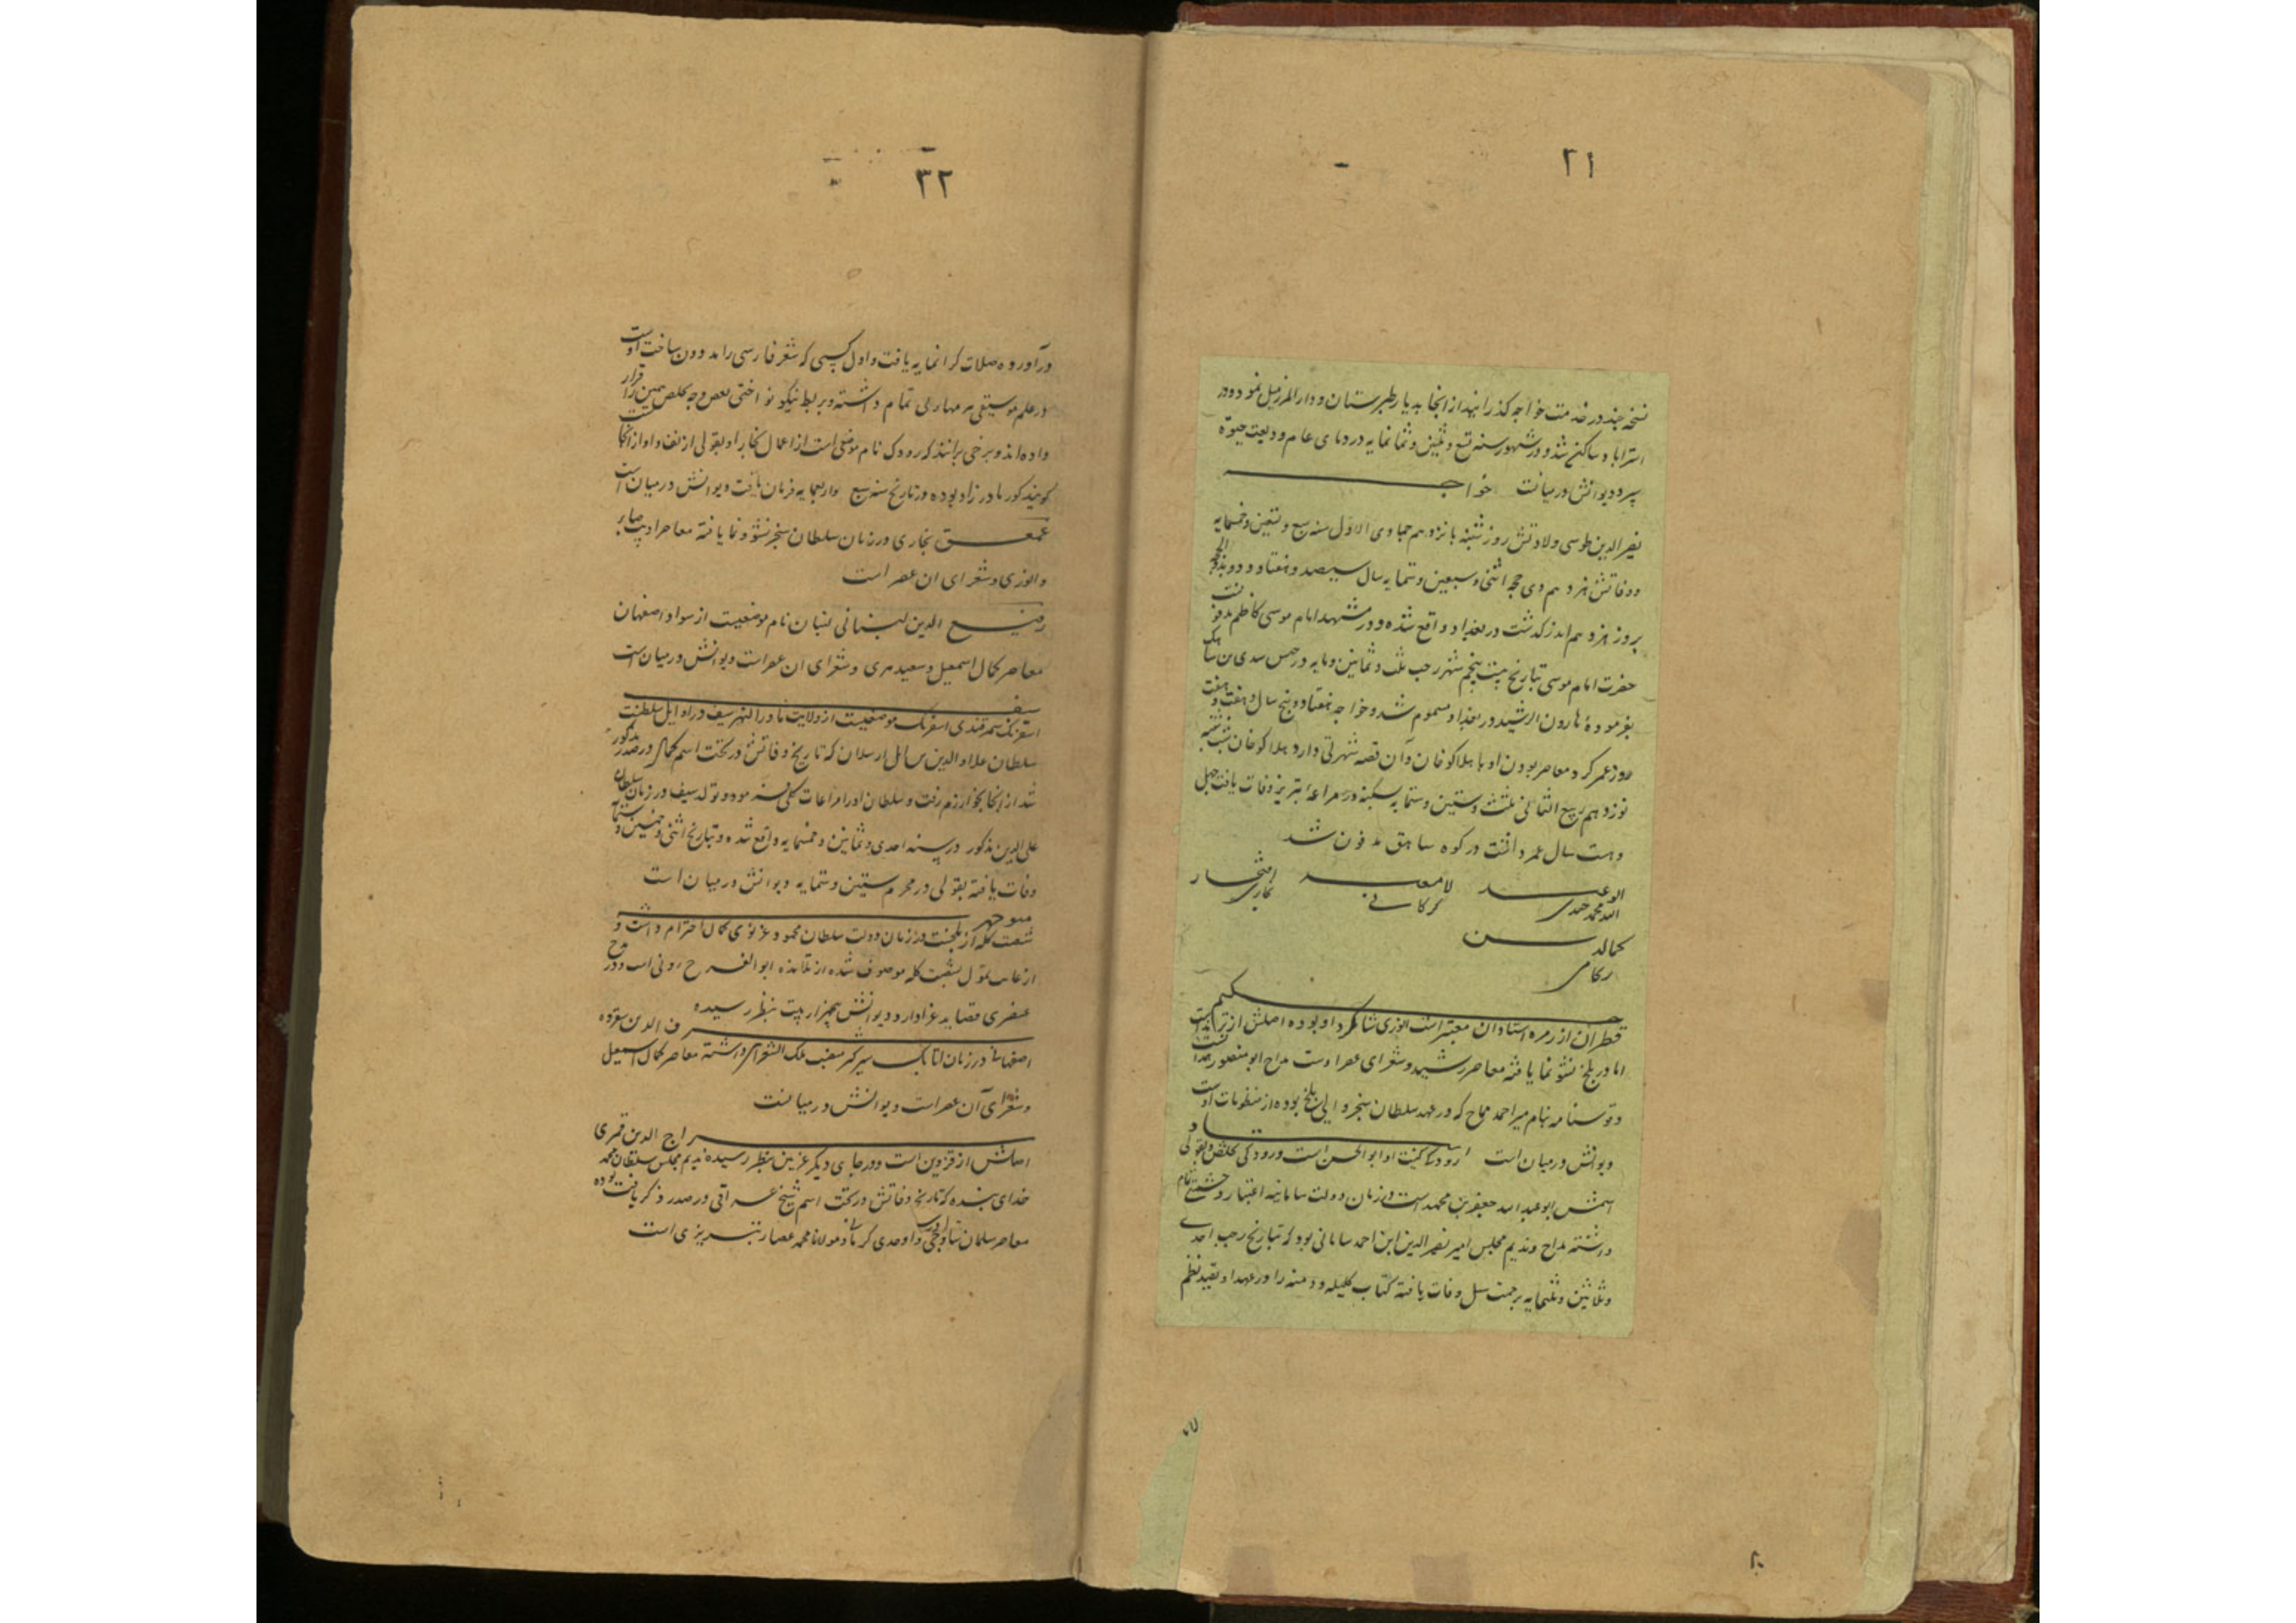 ٢١
نسخه چند در خدمت خواجه گذرانید از انجا به دیار طبرستان و دار المرز میل نمود و در
استراباد ساکن شد و در شهور سنه تسع و ثلثین و ثمانمایه در وبای عام ودیعت حیوة
سپرد دیوانش درمیانست خواجه
نصیر الدین طوسی ولادتش روز شنبه پانزدهم جمادی الاول سنه سبع و تسعین و خمسمایه
و وفاتش هژدهم ذی حجه اثنی و سبعین و ستمایه سال سیصد و هفتاد و دو بذی الحجه
بروز هژدهم اندر گذشت در بغداد واقع شده و در مشهد امام موسی کاظم مدفونست
حضرت امام موسی بتاریخ بیست پنجم شهر رجب ثلث و ثمانین و مایه در حبس سندی بن شاهک
بفرمودهٔ هارون الرشید در بغداد مسموم شد و خواجه هفتاد و پنج سال و هفت ماه و هفت
روز عمر کرد معاصر بودن او با هلاکو خان و آن قصه شهرتی دارد هلاکو خان شب شنبه
نوزدهم ربیع الثانی ثلث و ستین و ستمایه در مراغه تبریز وفات یافت چهل
و هشت سال عمر داشت در کوه ساهق مدفون شد
لامعی افتخار
کرکانی بخاری
قطران از زمره استادان معتبر است انوری شاکرد او بوده اصلش از ترمذ است
اما در بلخ نشو نما یافته معاصر رشید و شعرای عصر اوست مداح ابو منصور
و قوسنامه بنام میر احمد مماح که در عهد سلطان سنجر والی بلخ بوده از منظومات اوست
دیوانش درمیان است استاد رودکی کنیت او ابو الحسن است و رودکی تخلص و بقولی
اسمش ابو عبد الله جعفر بن محمد است در زمان دولت سامانیه اعتبار و حشمتی تمام
داشته مداح و ندیم مجلس امیر نصر الدین ابن احمد سامانی بود که بتاریخ رجب احدی
و ثلاثین و ثلثمایه بزحمت سل وفات یافته کتاب کلیله و دمنه را در عهد او بقید نظم
٣٢
درآورده صلات کرانمایه یافت و اول کسی که شعر فارسی را مدون ساخت اوست
در علم موسیقی مهارتی تمام داشته و بربط نیکو نواختی بعضی وجه تخلص همین را قرار
داده اند و برخی برانند که رودک نام موضعی است از اعمال بخارا و بقولی از نسف و او از انجا
کویند کور مادر زاد بوده در تاریخ سنه سبع و اربعمایه فرمان یافت دیوانش درمیان است
عمعق بخاری در زمان سلطان سنجر نشو و نما یافته معاصر ادیب صابر
و انوری و شعرای ان عصر است
رفیع الدین لنبانی لنبان نام موضعیست از سواد اصفهان
معاصر کمال اسمعیل و سعید هروی و شعرای ان عصر است دیوانش درمیان است
سیف
اسفرنک سمرقندی اسفرنک موضعیست از ولایت ماورا النهر سیف در اوایل سلطنت
سلطان علاء الدین ارسلان که تاریخ وفاتش در تحت اسم در صدر مذکور
شد از انجا بخوارزم رفت و سلطان او را مراعات کلی نموده تولد سیف در زمان سلطان
علی الدین مذکور در سنه احدی و ثمانین و خمسمایه واقع شده و بتاریخ اثنی و خمسین و ستمایه
وفات یافته بقولی در محرم ستین و ستمایه دیوانش درمیان است
منوچهر
شصت کله از بلخست در زمان دولت سلطان محمود غزنوی کمال احترام داشت و
از غایت تمول بشصت کله موصوف شده از تلامذه ابو الفرح رونی است و در مدح
عنصری قصاید غرا دارد و دیوانش سه هزار بیت بنظر رسیده شرف الدین شفروه
اصفهانی در زمان اتابک شیرکیر منصب ملک الشعرای داشته معاصر کمال اسمعیل
و شعرای آن عصر است دیوانش درمیانست
سراج الدین قمری
اصلش از قزوین است و در جای دیکر غزنین بنظر رسیده ندیم مجلس سلطان محمد
خدای بنده که تاریخ وفاتش در تحت اسم شیخ عراقی در صدر ذکر یافت بوده
معاصر سلمان ساوجی و اوحدی کرمانی و مولانا محمد عصار تبریزی است